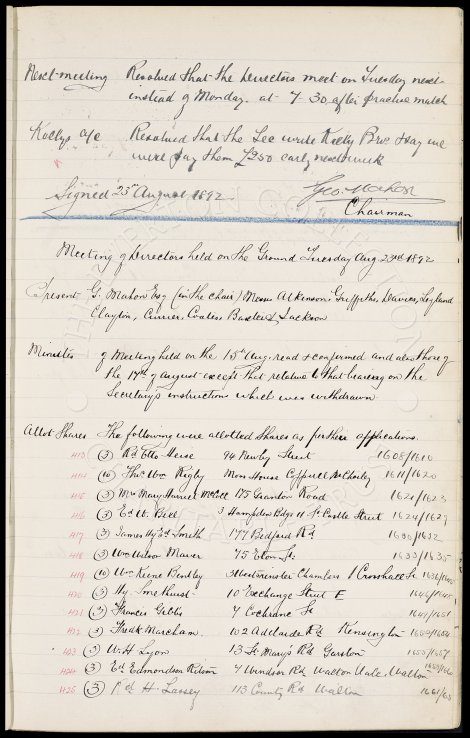 Next meeting Resolved that the Directors meet on Tuesday next
instead of Monday. at 7-30 after practise match
Kellys a/c Resolved that the Sec write Kelly Bros & say we
will pay them £250 early next week
Signed 23rd August 1892 Geo. Mahon
Chairman
Meeting of Directors held on the Ground Tuesday Aug 23rd 1892
Present G. Mahon Esq (in the chair) Messrs Atkinson Griffiths, Davies, Leyland
Clayton, Currier, Coates, Baxter & Jackson
Minutes of Meeting held on the 15th Aug. read & confirmed and also those of
the 17th of August except that relative to that bearing on the
Secretary's instructions which was withdrawn
Allot Shares The following were allotted shares as per their applications.
413 (3) Rd Otto Hesse 94 Newby Street 1608/1610
414 (10) Thos Wm Rigby Moss House Coppull Nr Chorley 1611/1620
415 (3) Mrs Mary 175 Grandon Road 1621/1623
416 (6) Ed. W. Bell 3 Hampden Bdgs 11 St Castle Street 1624/1629
417 (3) James Hy Smith 177 Bedford Rd 1630/1632
418 (3) Wm Wilson 75 Eton St 1633/1635
419 (10) Wm Keene Bentley 3 Westminster Chambers 1 Crosshall St 1636/1645
420 (3) Hy. Smethurst 10 Exchange Street E 1646/1648
421 (3) Francis Gibbs 7 Cochrane St 1649/1651
422 (3) Fredk Marcham 102 Adelaide Rd Kensington 1652/1654
423 (3) W. H. Lyon 13 St. Mary's Rd Garston 1655/1657
424 (3) Ed. Edmondson 4 Windsor Rd Walton Vale, Walton 1658/1660
425 (3) H. Lassey 113 County Rd Walton 1661/63